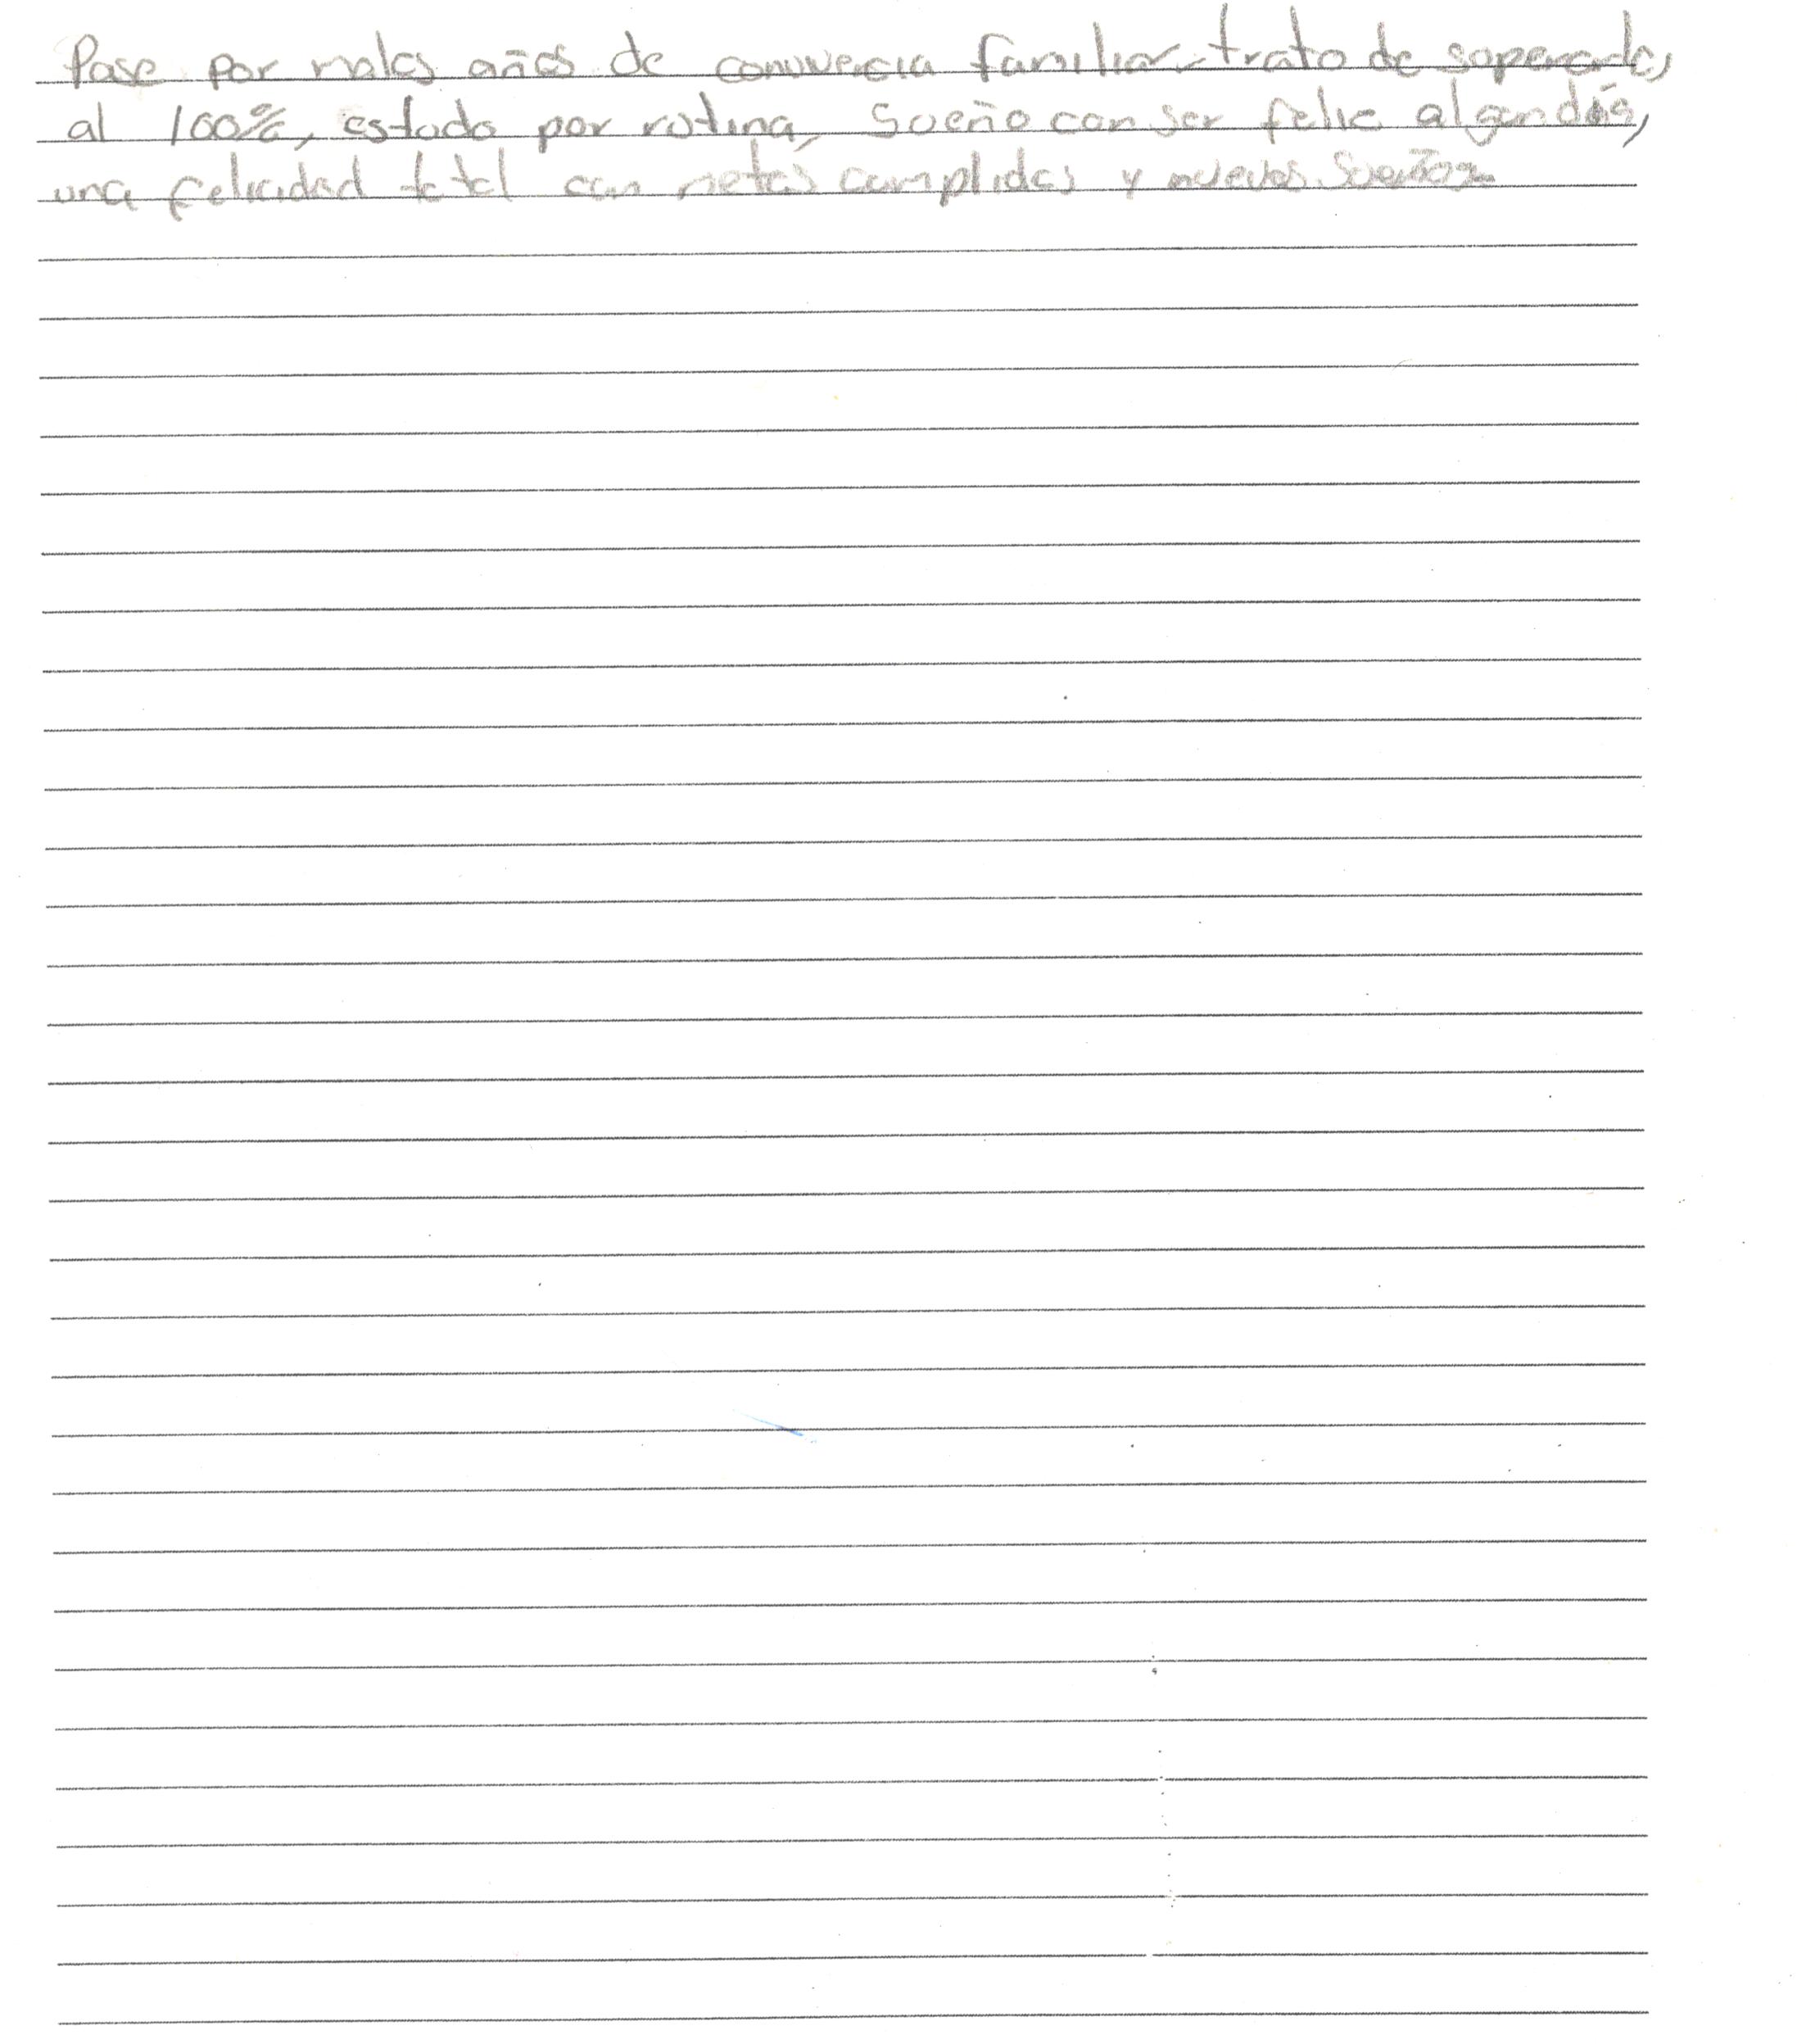 Pase por malos años de convivencia familiar trato de superarlos
al 100%, estudo por rutina, Sueño con ser felíz algun dia,
una felicidad total con metas cumplidas y nuevos Sueños